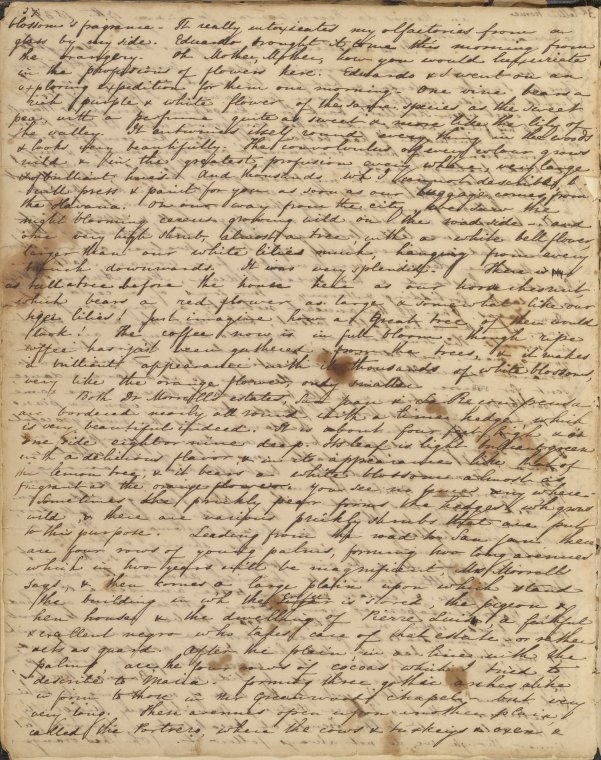 37
blossom's fragrance. It really intoxicates my olfactories from a
glass by my side. Eduardo brought it home this morning from
the orangery. Oh Mother, Mother, how you would luxuriate
in the profusions of flowers here. Eduardo & I went on an
exploring expedition for them one morning. One vine bears a
rich purple & white flower of the same species as the sweet
pea, with a perfume quite as sweet & more like the lily of
the valley. It entwines itself round every thing in the woods
& looks very beautifully. The convolvulus of every color grows
wild & in the greatest profusion every where, very large
& of brilliant hues. And thousands wh. I can not describe, I
shall press & paint for you as soon as our luggage comes from
the Havana. On our way from the city, we saw the
night blooming cereus growing wild on the road side, and
one very high shrub, almost a tree, with a white bell flower
larger than our white lilies much, hanging from every
branch downwards. It was very splendid. There is
as tall a tree before the house here as our horse chesnut
which bears a red flower as large & somewhat like our
tiger lilies! just imagine how a great tree of them would
look. The coffee now is in full bloom, though ripe
coffee has just been gathered from the trees, & it makes
a brilliant appearance with its thousands of white blossoms,
very like the orange flower, only smaller.
Both Dr Morrell's estates,
are bordered nearly all round with a lime hedge, which
is very beautiful indeed. It is about four feet high, & on
one side eight or nine deep. Its leaf is light green
with a delicious flavor & in its appearance like that of
the lemon tree, & it bears a white blossom almost as
fragrant as the orange flower. You see no fences any where.
Sometimes the prickly pear forms the hedges wh. grows
wild, & there are various prickly shrubs that are put
to this purpose. Leading from the road to San Juan there
are four rows of young palms, forming two long avenues
which in two years will be magnificent Mrs Morrell
says, & then comes a large plain upon which stand
the building in wh. the coffee is stored, the pigeon &
hen house, & the dwelling of Pierre Louis, a faithful
& excellent negro who takes care of that estate or rather
acts as guard. After the plain in a line with the
palms, are the four rows of cocoas which I tried to
describe to Maria forming three gothic arches alike
in form to those in the Greenwood chapel, but very
very long. These avenues open upon another plain,
called the Portrero, where the cows & turkeys & oxen &